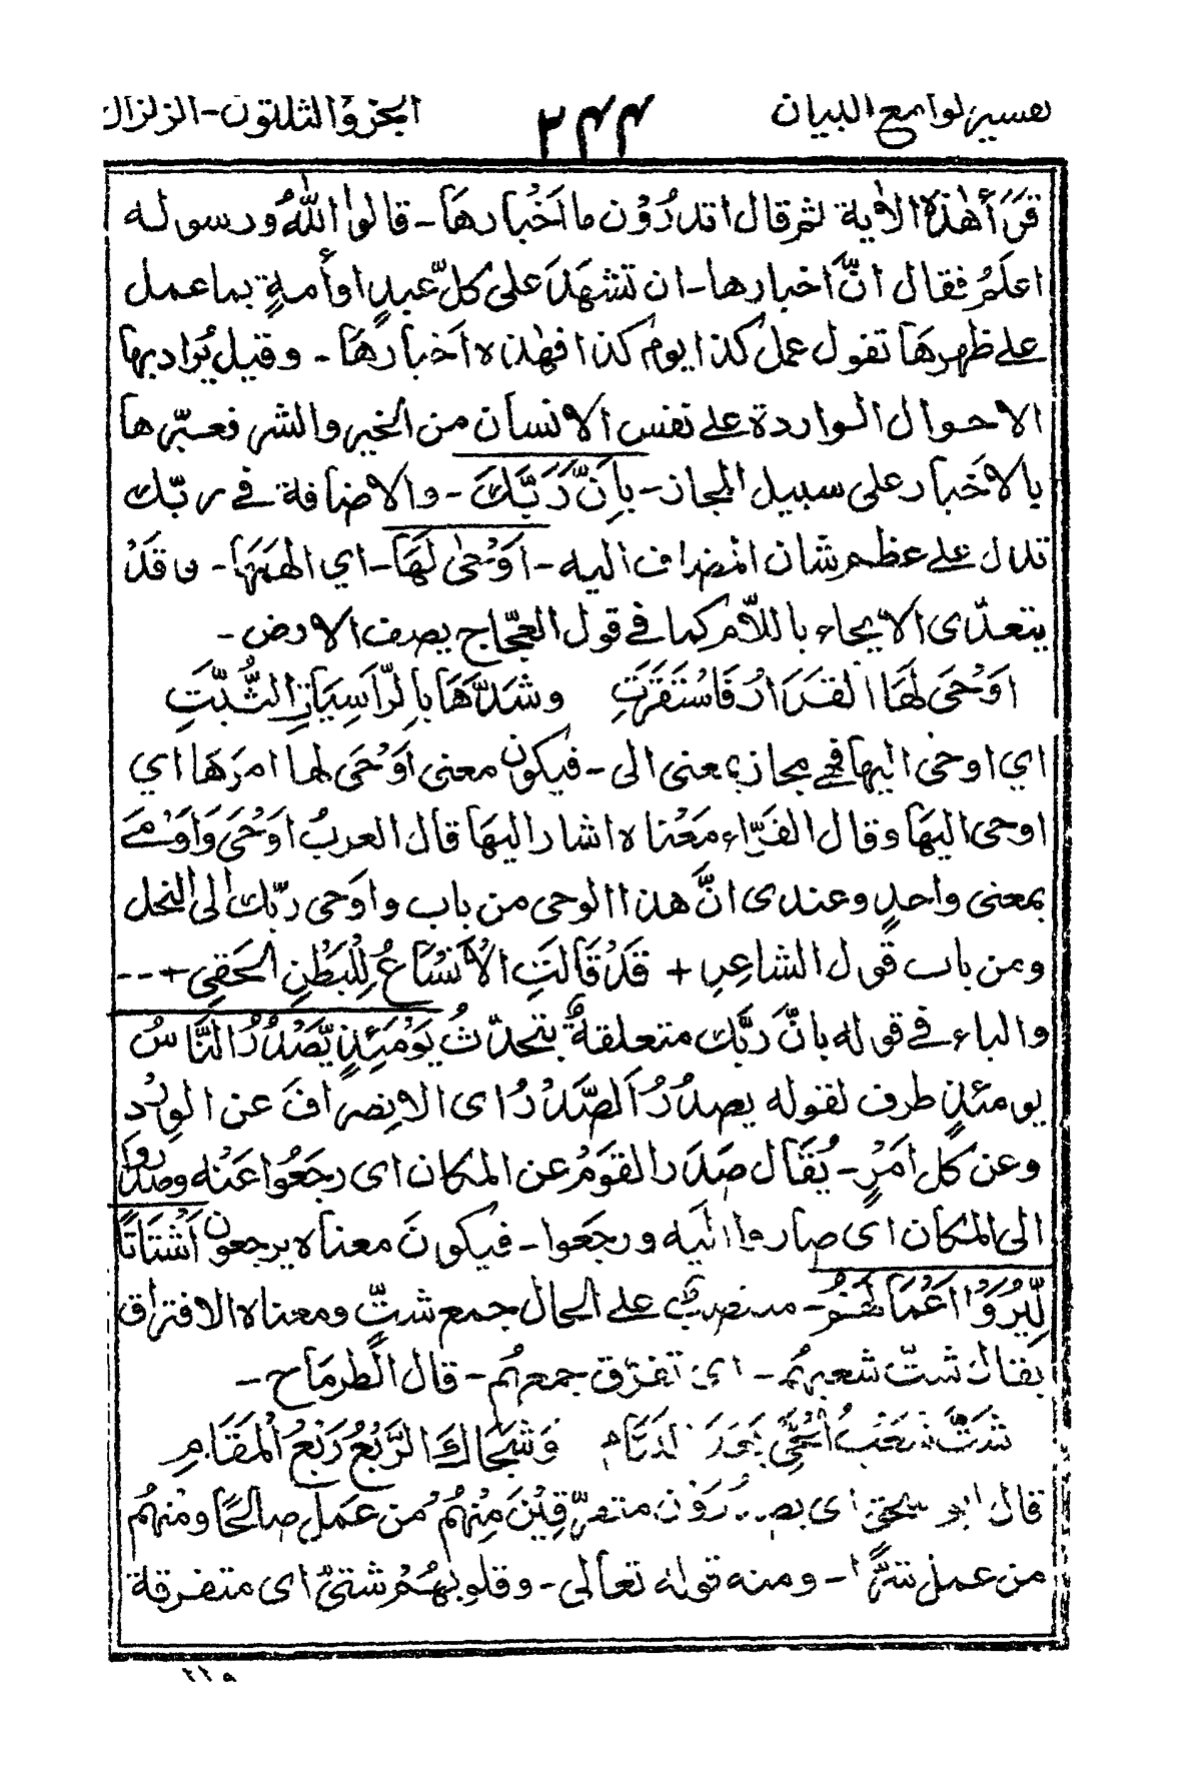 تفسير لوامع البيان ٢٤٤ الجزء الثلثون - الزلزال
قَرَأ هٰذه الاٰية ثم قال اتدرُوْن ما اَخْبارهَا - قالوا اللّٰهُ ورسوله
اعلَمُ فقال انَّ اَخبارها - ان تشهَدَ على كلّ عبدٍ اوأمةٍ بما عمل
على ظهرهَا تقول عمل كذا يوم كذا فهٰذه اَخبارهَا - وقيل يُراد بها
الاحوال الواردة على نفس الانسان من الخير والشر فعبّرها
بالاَخبار على سبيل المجاز - بِاَنَّ رَبَّكَ - والاضافة في ربّك
تدل على عظم شان المضاف اليه - اَوْحٰى لَهَا - اي الهَمَهَا - وقَدْ
يتعدّى الايحاء باللّام كما في قول العجّاج يصف الارض -
اَوْحَى لَهَا القَرَارُ فَاسْتَقَرَّتِ وشَدَّهَا بِالرّاسِيَاتِ الثُّبَّتِ
اي اوحٰى اليها فهي مجاز بمعنى الى - فيكون معنى اَوْحَى لها امرَهَا اي
اوحى اليهَا وقال الفَرّاء مَعْناه اشار اليهَا قال العربُ اَوْحَى وَاَوْمَى
بمعنى واحدٍ وعندى انَّ هذا الوحى من باب واَوحى ربّك الى النحل
ومن باب قول الشاعِرِ + قَدْ قَالَتِ الْاَنْسَاعُ لِلْبَطْنِ الحَقِى + - -
والباء في قوله بانَّ ربَّك متعلقةٌ بتحدّثُ يَوْمَئِذٍ يَّصْدُرُ النَّاسُ
يومئذٍ ظرف لقوله يصدُرُ اَلصَّدْرُ اى الاِنصرافَ عن الوِرْد
وعن كل اَمرٍ - يُقَال صَدَر القَومُ عن المكان اى رجَعُوا عَنْه وصَدَرُوا
الى المكان اى صاروا اليه ورجَعوا - فيكونَ معناه يرجعون اَشْتَاتًا
لِّيُرَوْا اَعْمَالَهُمْ - منصوب على الحال جمع شتٍّ ومعناه الافتراق
يقال شتّ شعبهُم - اى تفرّق جمعهُم - قال الطرمَاح -
شَتَّ شَعْبُ الْحَيِّ بَعدَ وَشَجَاكَ الرَّبْعُ رَبْعُ الْمَقَامِ
قال ابو اى متفرّقِيْنَ مِنْهُمْ من عَمل صالحًا ومْنهُم
من عمل شرًّا - ومنه قوله تعالى - وقلوبهُمْ شتىٰ اى متفرقة